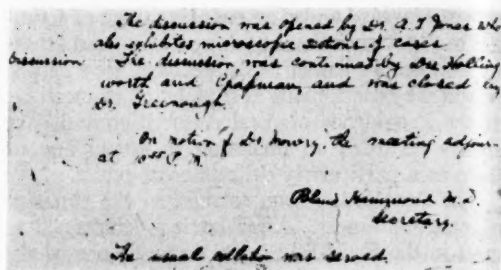 The discussion was opened by Dr. A. T. Jones who
also exhibites microscopic sections of cases
Discussion The discussion was continued by Drs Holling
worth and Chapman, and was closed by
Dr. Greenough.
On motion of Dr. Mowry, the meeting adjour-
at P. M.
Hammond M.D.
Secretary
The usual collation was served.